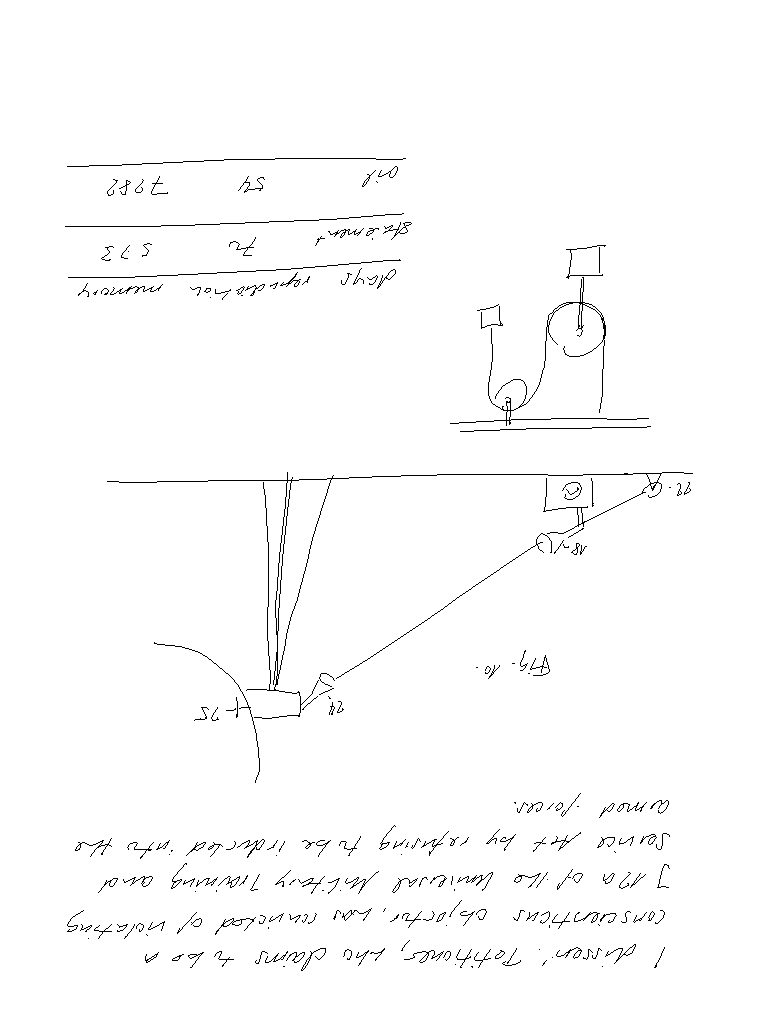 I dissent. Petitioner, who claims to be a
conscientious objector, was convicted of violating
§ 12 a of the Universal Military Training and
Service Act by refusing to be inducted into the
armed forces.
24
25
Fig. 10.
18
22.
days repudiation memory
statement 72 573
oil 54